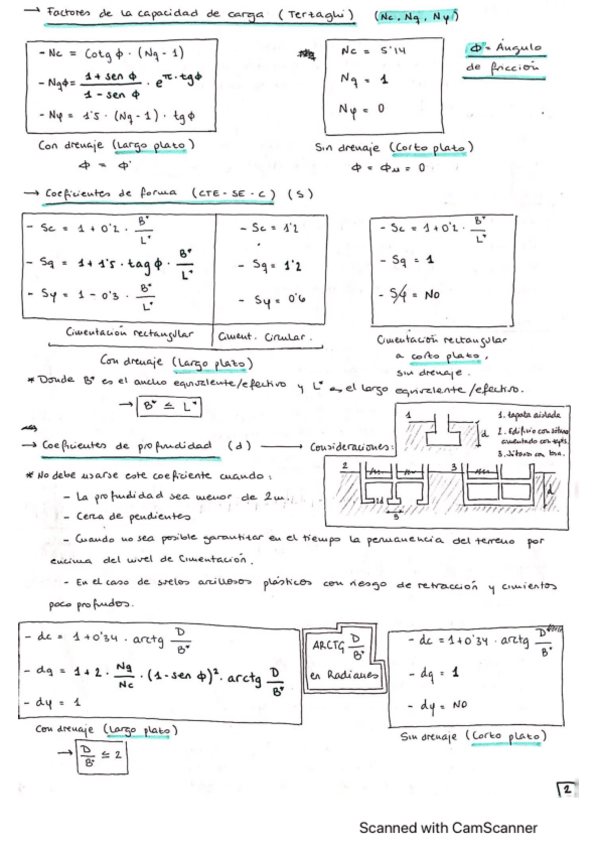 → Factores de la capacidad de carga (Tertaghi) (Nc, Nq, Nγ)
- Nc = Cotg ϕ · (Nq - 1)
- Nqϕ = 1 + sen ϕ / 1 - sen ϕ · e^π·tgϕ
- Nγ = 1'5 · (Nq - 1) · tgϕ
Con drenaje (Largo plato)
ϕ = ϕ'
Nc = 5'14
Nq = 1
Nγ = 0
Sin drenaje (Corto plato)
ϕ = ϕu = 0
ϕ = Ángulo
de fricción
→ Coeficientes de forma (CTE - SE - C) (S)
- Sc = 1 + 0'2 · B*/L*
- Sq = 1 + 1'5 · tag ϕ · B*/L*
- Sγ = 1 - 0'3 · B*/L*
Cimentación rectangular
- Sc = 1'2
- Sq = 1'2
- Sγ = 0'6
Ciment. Circular.
Con drenaje (Largo plato)
- Sc = 1 + 0'2 · B*/L*
- Sq = 1
- Sγ = NO
Cimentación rectangular
a corto plato,
sin drenaje.
* Donde B* es el ancho equivalente/efectivo y L* es el largo equivalente/efectivo.
→ B* ≤ L*
→ Coeficientes de profundidad (d) → Consideraciones:
1
d
1. tapata aislada
2. Edificio con sótano
cimentado con
3. Sótano con losa.
2
d
B
3
d
* No debe usarse este coeficiente cuando:
- La profundidad sea menor de 2m.
- Cerca de pendientes
- Cuando no sea posible garantizar en el tiempo la permanencia del terreno por
encima del nivel de Cimentación.
- En el caso de suelos arcillosos plásticos con riesgo de retracción y cimientos
poco profundos.
- dc = 1 + 0'34 · arctg D/B*
- dq = 1 + 2 · Nq/Nc · (1 - sen ϕ)² · arctg D/B*
- dγ = 1
Con drenaje (Largo plato)
→ D/B* ≤ 2
ARCTG D/B*
en Radianes
- dc = 1 + 0'34 · arctg D/B*
- dq = 1
- dγ = NO
Sin drenaje (Corto plato)
2
Scanned with CamScanner